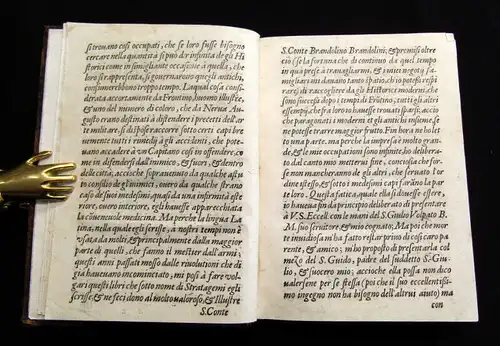 si trouano così occupati, che se loro fusse bisogno
cercare nella quantità sì può dir infinita de gli Hi
storici come in simigliante occasione à quella, che
loro si rapresenta, si gouernarono quegli antichi,
consumerebbono troppo tempo. Laqual cosa consi
derata accortamente da Frontino, huomo illustre,
& uno del numero di coloro, che da Nerua Au-
gusto erano destinati à difendere i precetti dell'ar
te militare, si dispose raccorre sotto certi capi bre
uemente tutti i rimedij a gli accidenti, che pote-
uano accadere à un Capitano così in offendere, co
me in difendersi dall'inimico, & fuori, & dentro
delle città, accioche sopranenuto da qualche astu
to consilio de gli inimici, ouero da qualche strano
caso di sue medesimi, quasi da una infirmità ò este
riore, ouero interiore, egli hauesse apparecchiata
la conueneuole medicina. Ma perche la lingua La
tina, nella quale gli scrisse, a nostri tempi non è
usata, da molti, & principalmente dalla maggior
parte di quelli, che fanno il mestier dall'armi,
questi anni passati mosso dalle riuolutioni che di
già haueuano incominciato, mi posi à fare uol-
gari questi libri che sotto nome di Stratagemi egli
scrisse, & ne feci dono al molto ualoroso, & Illustre
S. Conte
S. Conte Brandolino Brandolini, & promisi oltre
ciò (se la fortuna che di continuo da quel tempo
in quà prese à trauagliarmi, & i miei negotij fami-
gliari tanti dannosamente non mi disturbauano)
di raccogliere da gli Historici moderni, che
sono successi dopo i tempi di Frōtino, tutti gli altri
essempij, che fin'hora erano trouati sparsi, accio
che paragonati i moderni et gli antichi insieme, se
ne potesse trarre maggior frutto. Fin hora ne hò let
to una parte, ma perche la impresa è molto grande,
& le mie occupationi sono infinite, io delibera-
to dal canto mio metterui fine, conciosia che so
non mancheranno de gli altri, che seruato l'or
dine istesso, & sotto i medesimi capi faranno la par
te loro. Questa fatica, quale ella si douesse essere,
è mio proposito hauea che fusse appresentata
à V. S. Eccell. con le mani del S. Giulio Volpato B.
M. suo seruitore, & mio cognato; Ma poi che mor
te inuidiosa mi ha fatto restar priuo di così caro pa
rente, & amico; mi hò proposto di presentarla col
mezo del S. Guido, padre del suddetto S. Giu-
lio, & suocero mio, accioche ella possa non di co
ualersene per se stessa (poi che il suo eccellentissi-
mo ingegno non ha bisogno dell'altrui aiuto) ma
con